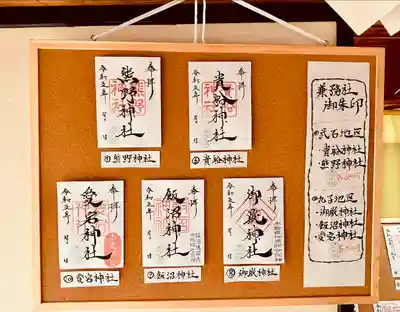 奉拝
熊野神社
令和五年 月 日
⑪熊野神社
奉拝
貴船神社
令和五年 月 日
⑥貴船神社
奉拝
愛宕神社
令和五年 月 日
⑩愛宕神社
奉拝
飯沼神社
令和五年 月 日
⑦飯沼神社
奉拝
御嶽神社
令和五年 月 日
⑧御嶽神社
兼務社
御朱印
地区
・貴船神社
・熊野神社
地区
・御嶽神社
・飯沼神社
・愛宕神社